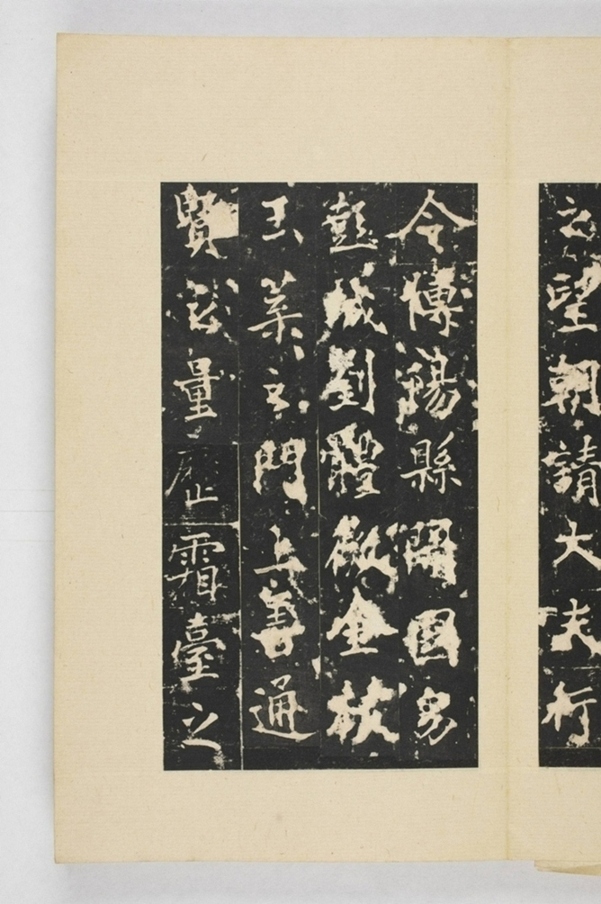 公望朝請大夫行
令博陽縣開國男
彭城劉體微金枝
玉葉公門上善通
賢公量歷霜臺之